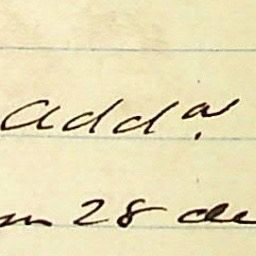 Add.ª
28 de